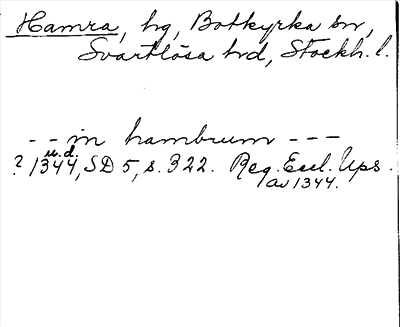 Hamra, hg, Botkyrka sn,
Svartlösa hd, Stockh. l.
- - in hambrum - - -
u.d.
? 1344, SD 5, s. 322. Reg. Eccl. Ups.
av 1344.